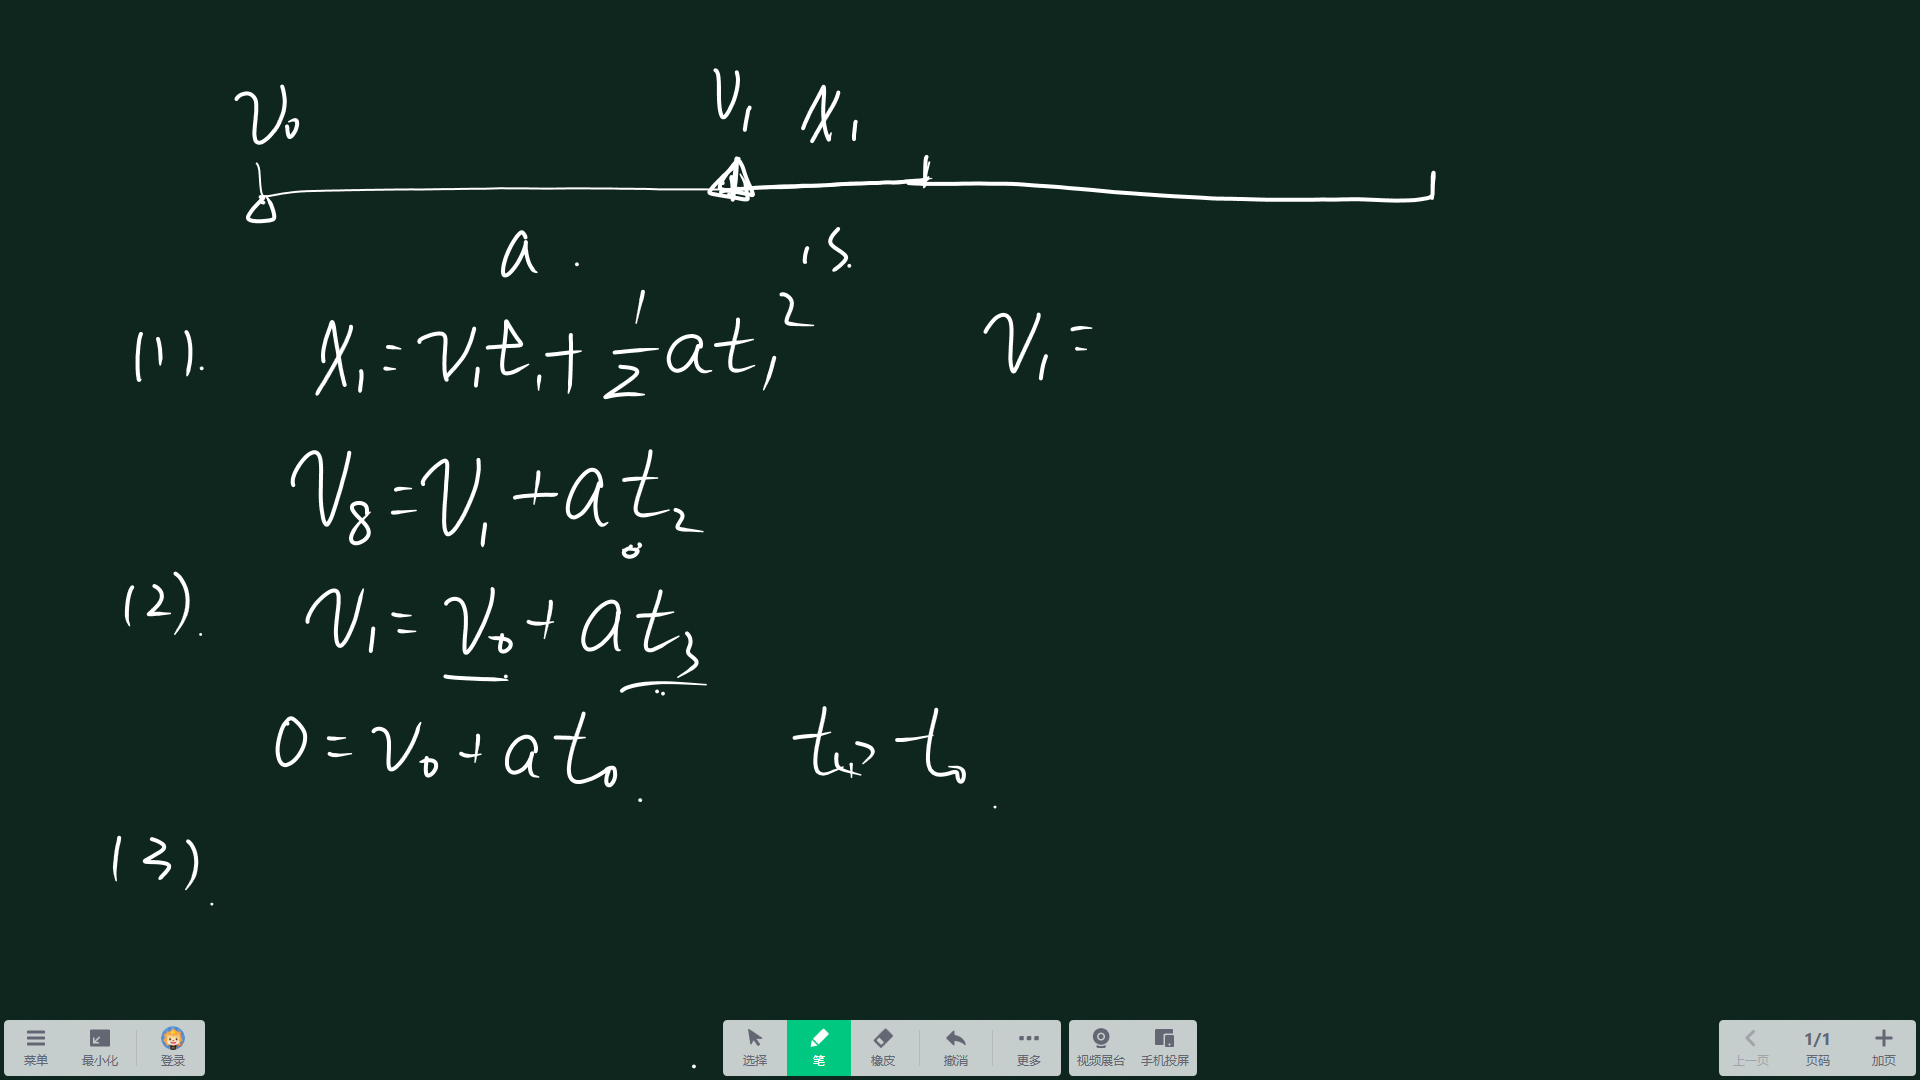 v₀ v₁ x₁
a. 1s.
(1). x₁=v₁t₁+½at₁² v₁=
v₈=v₁+at₂
(2). v₁=v₀+at₃
0=v₀+at₀. t₄>t₀.
(3).
菜单 最小化 登录 选择 笔 橡皮 撤消 更多 视频展台 手机投屏 上一页 1/1 页码 加页